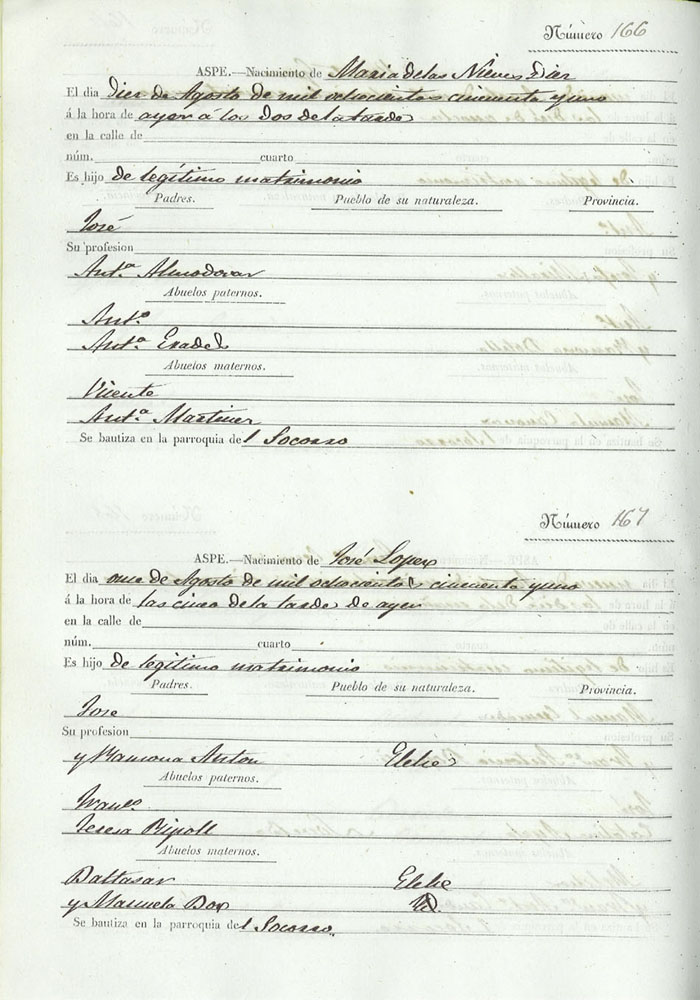 Número 166
ASPE.—Nacimiento de Maria de las Nieves Dier
El dia Dier de Agosto de mil ochocientos cincuenta y uno
á la hora de ayer á las dos de la tarde
en la calle de
núm. cuarto
Es hijo de legítimo matrimonio
Padres. Pueblo de su naturaleza. Provincia.
José
Su profesion
Antª Almodovar
Abuelos paternos.
Antº
Antª
Abuelos maternos.
Vicente
Antª Martinez
Se bautiza en la parroquia del Socorro
Número 167
ASPE.—Nacimiento de José Lopez
El dia once de Agosto de mil ochocientos cincuenta y uno
á la hora de las cinco de la tarde de ayer
en la calle de
núm. cuarto
Es hijo de legitimo matrimonio
Padres. Pueblo de su naturaleza. Provincia.
Jose
Su profesion
y Ramona Anton Elche
Abuelos paternos.
Franco
Teresa Ripoll
Abuelos maternos.
Baltasar Elche
y Manuela Box Id.
Se bautiza en la parroquia del Socorro.